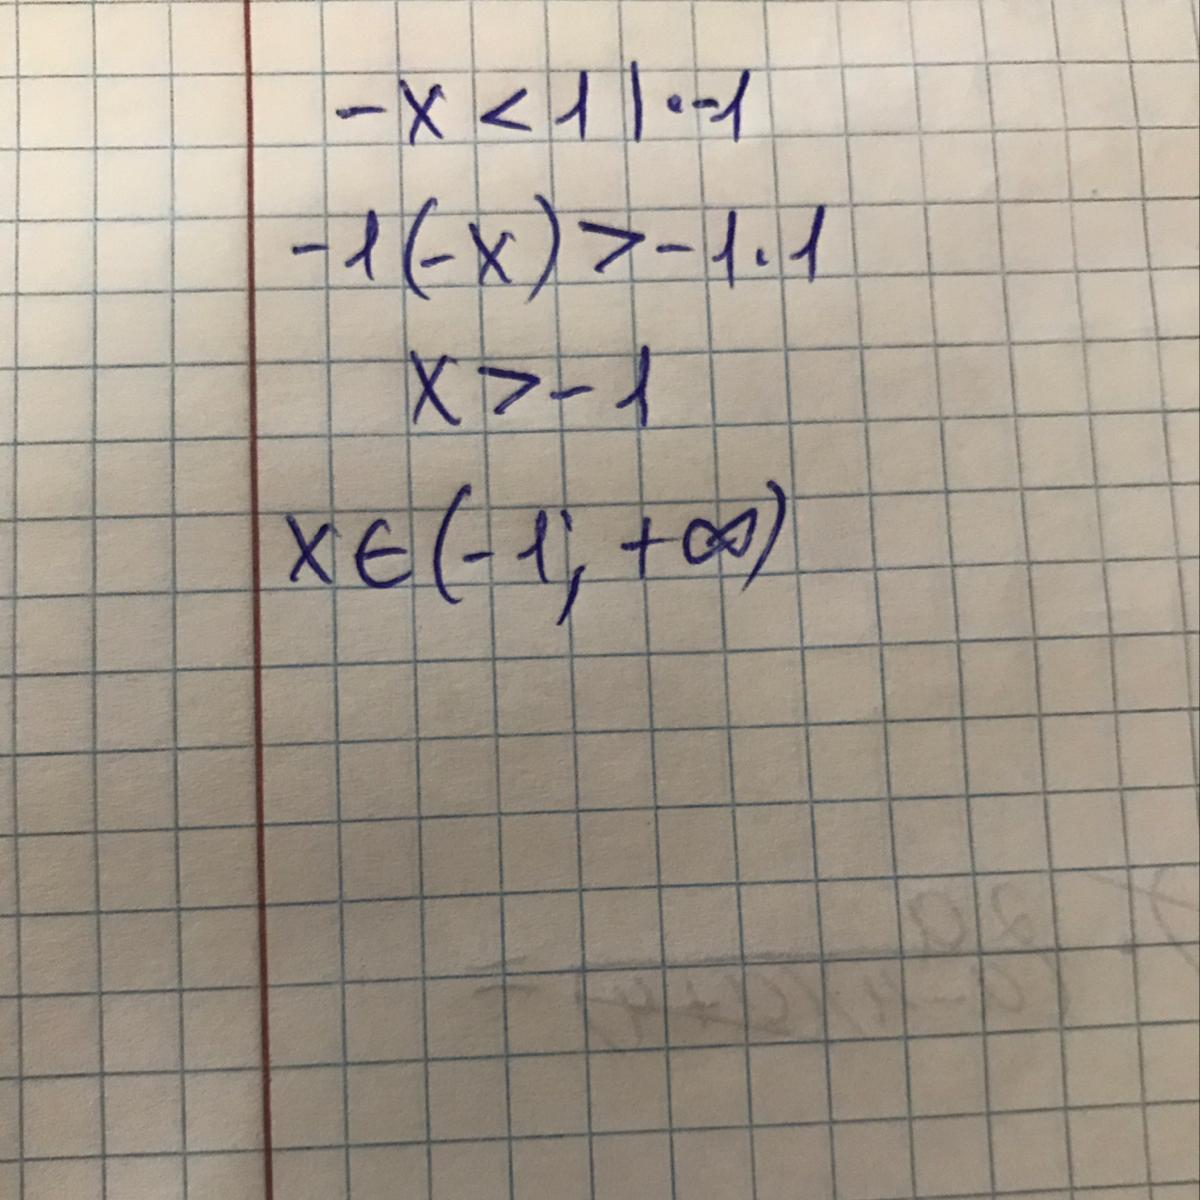 -x < 1 | · -1
-1(-x) > -1 · 1
x > -1
x ∈ (-1; +∞)